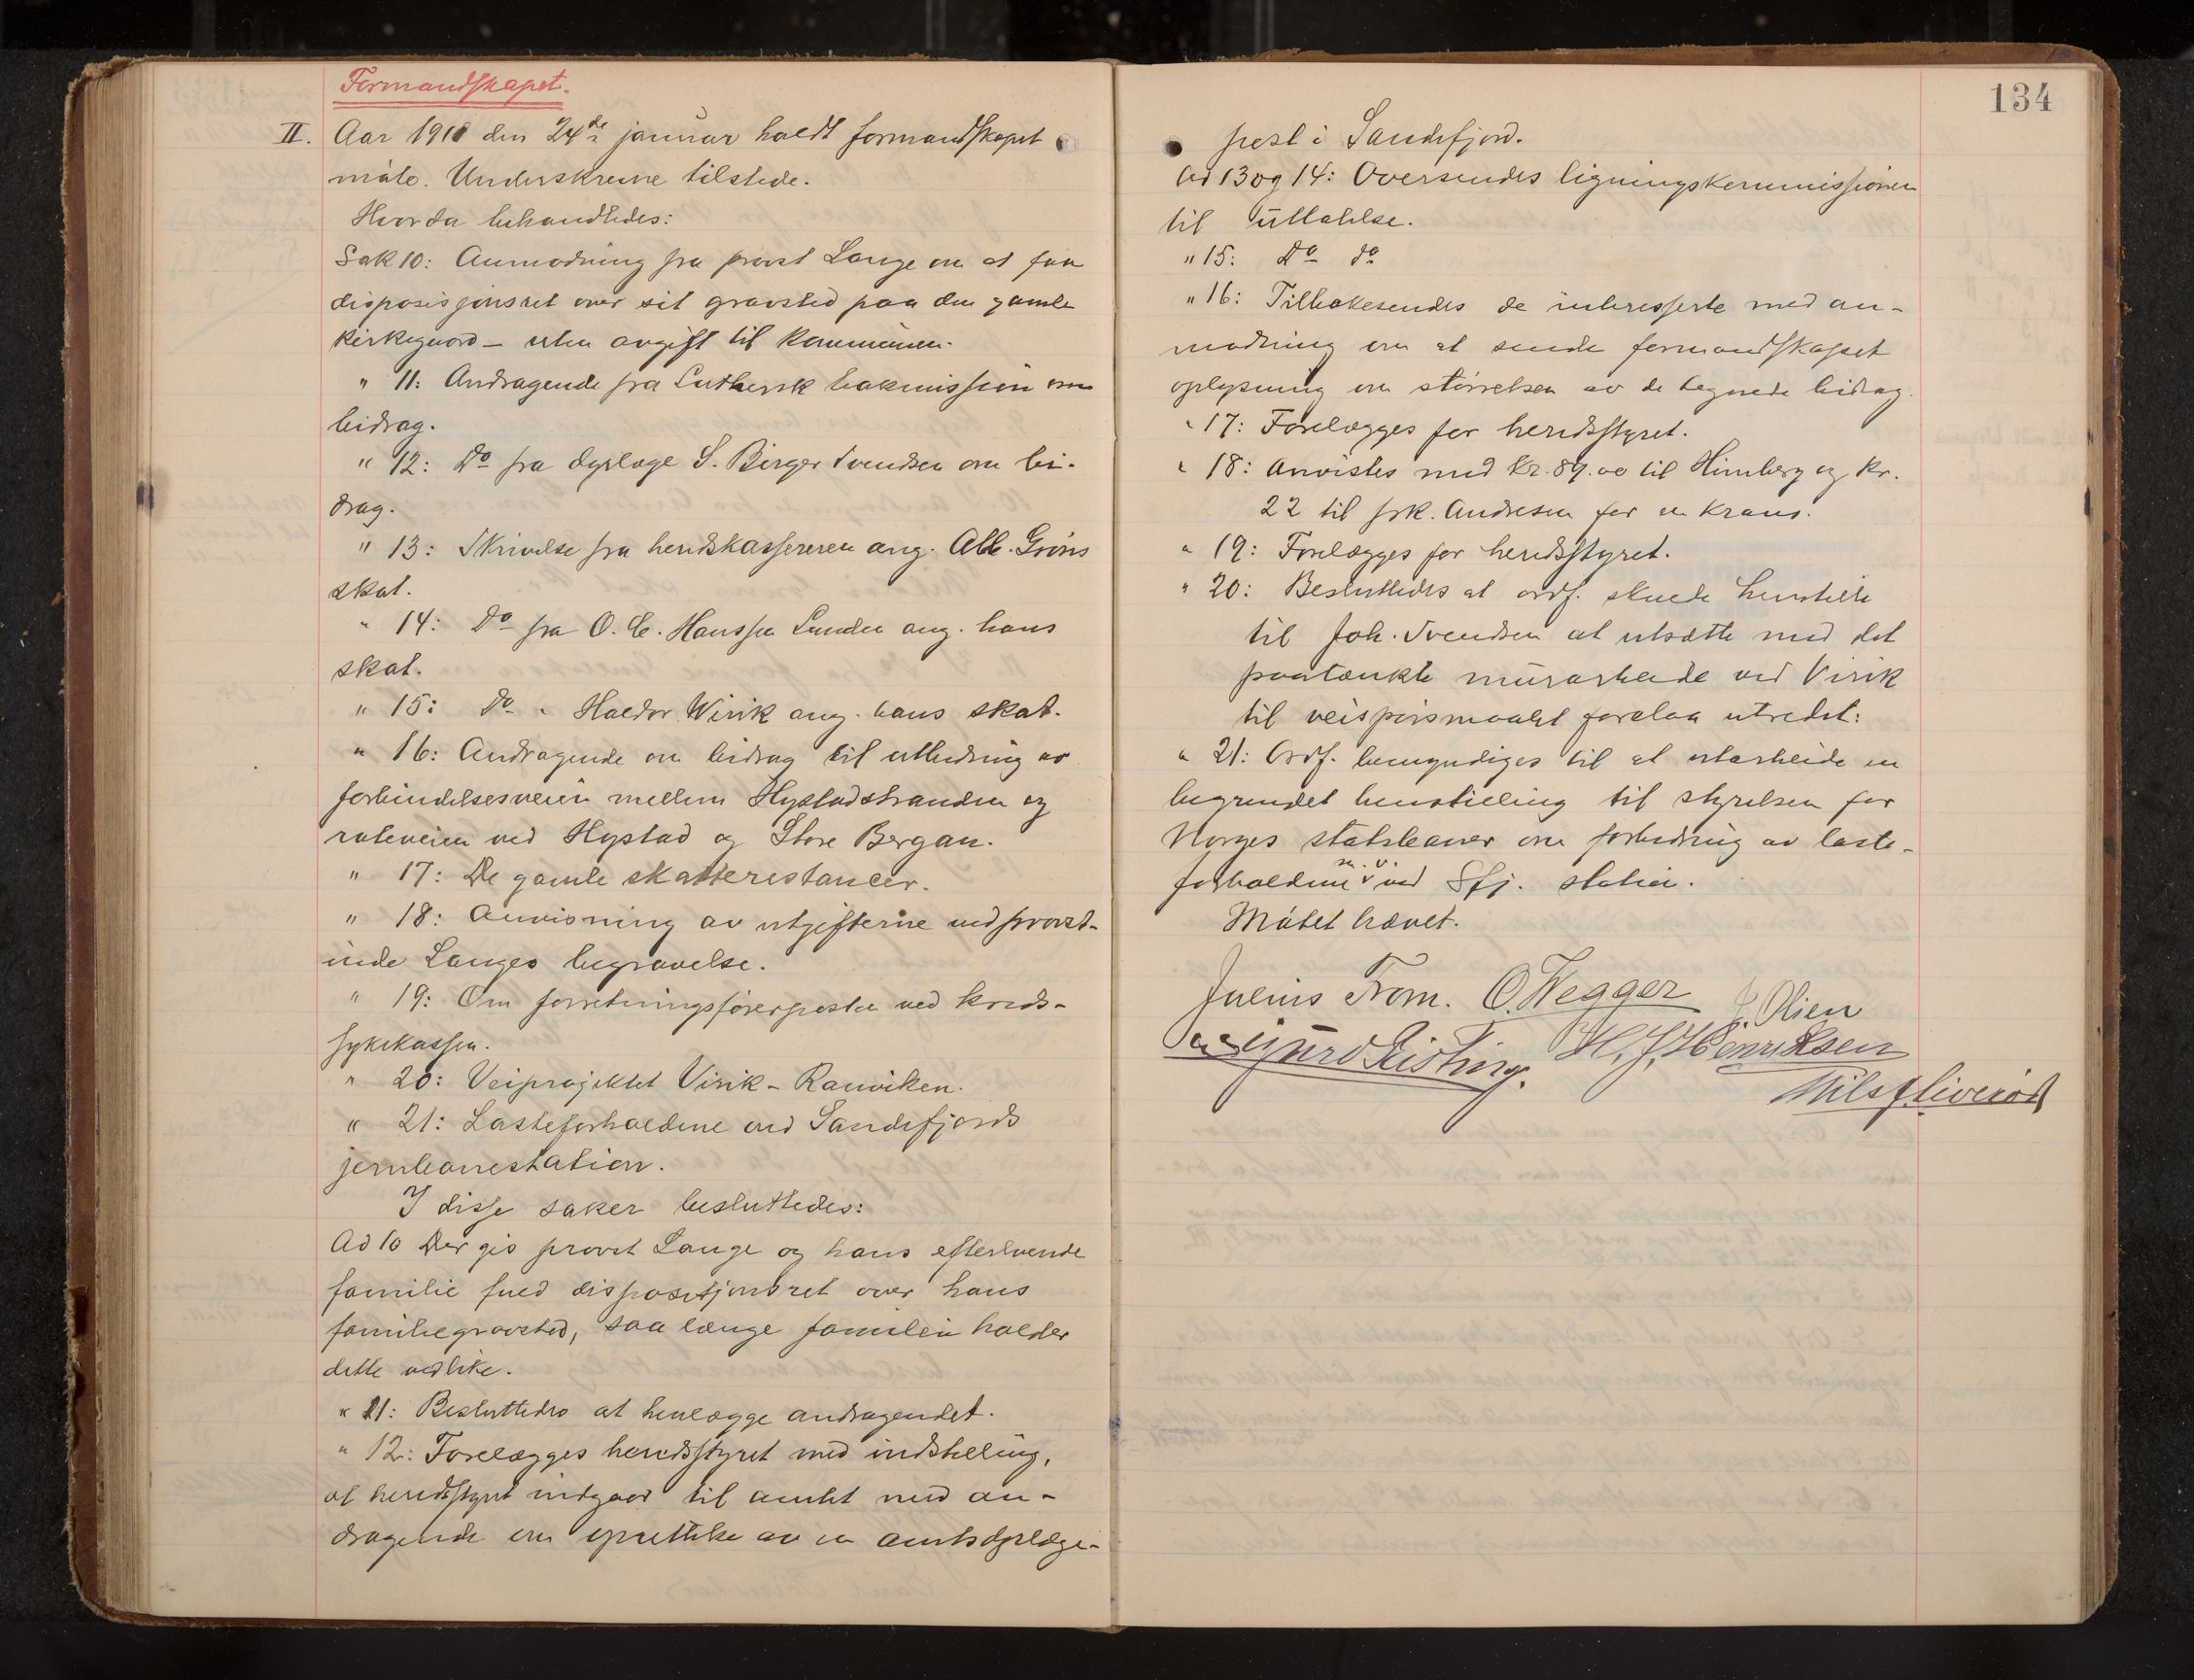 Formandskapet.
II. Aar 1918 den 24de januar holdt formandskapet
møte. Underskrevne tilstede.
Hvorda behandledes:
Sak 10: Anmodning fra provst Lange om at faa
disposisjonsret over sit gravsted paa den gamle
kirkegaard - uten avgift til kommunen.
" 11: Andragende fra Luthersk bokmission om
bidrag.
" 12: Do fra dyrlæge S. Birger Svendsen om bi-
drag.
" 13: Skrivelse fra herredskassereren ang. Alb. Grøns
skat.
" 14: Do fra O. C. Hanssen Lunden ang. hans
skat.
" 15: Do " Haldor Wirik ang. hans skat.
" 16: Andragende om bidrag til utbedring av
forbindelsesveien mellem Hystadstranden og
roteveien ved Hystad og Store Bergan.
" 17: De gamle skatterestancer.
" 18: Anvisning av utgifterne ved provst-
inde Langes begravelse.
" 19: Om forretningsførerposten ved kreds-
sykekassen.
" 20: Veiprojektet Virik - Ranviken.
" 21: Lasteforholdene ved Sandefjords
jernbanestation.
I disse saker besluttedes:
Ad 10 Der gis provst Lange og hans efterlevende
familie fued disposisjonsret over hans
familiegravsted, saa længe familien holder
dette vedlike.
" 11: Besluttedes at henlægge andragendet.
" 12: Forelægges herredsstyret med indstilling,
at herredsstyret indgaar til amtet med an-
dragende om oprettelse av en amtsdyrlæge-
134
post i Sandefjord.
Ad 13 og 14: Oversendes ligningskommissionen
til uttalelse.
" 15: Do do
" 16: Tilbakesendes de interesserte med an-
modning om at sende formandskapet
oplysning om størrelsen av de tegnede bidrag.
" 17: Forelægges for herredsstyret.
" 18: Anvistes med kr. 89.00 til Himberg og kr.
22 til frk. Andresen for en krans.
" 19: Forelægges for herredsstyret.
" 20: Besluttedes at ordf. skulde henstille
til Joh. Svendsen at utsætte med det
paatænkte murarbeide ved Virik
til veispørsmaalet forelaa utredet.
" 21: Ordf. bemyndiges til at utarbeide en
begrundet henstilling til styrelsen for
Norges statsbaner om forbedring av laste-
forholdene m.v. ved Sfj. station.
Møtet hævet.
Julius Trom. O. Wegger J. Olien
Sigurd Risting. H. J. Henriksen
Nils Liverød